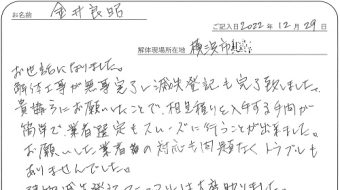 お名前 金井良昭
ご記入日 2022年12月29日
解体現場所在地 横浜市
お世話になりました。
解体工事が無事完了し滅失登記も完了致しました。
貴協会にお願いしたことで、相見積りを入手する手間が
簡単で、業者選定もスムーズに行うことが出来ました。
お願いした業者の対応も問題なくトラブルも
ありませんでした。